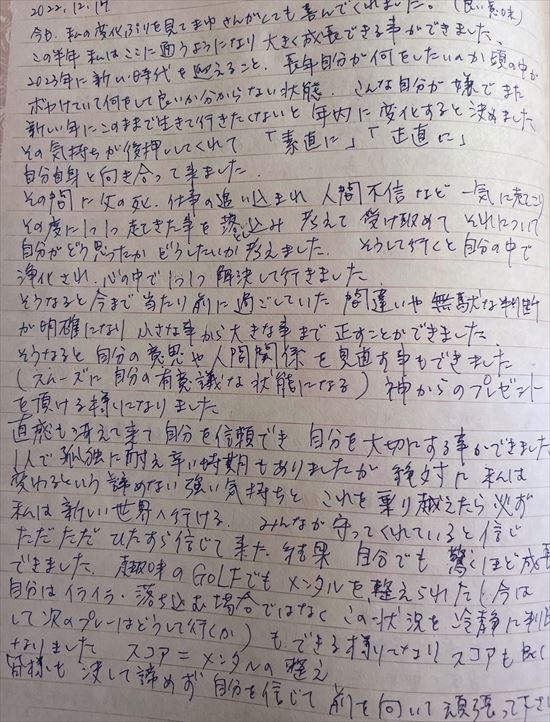 2022.12.19
今も、私の変化ぶりを見てまゆさんがとても喜んでくれました。(良い意味)
この半年 私はここに通うようになり 大きく成長できる事ができました。
2023年に新しい時代を迎えること、長年自分が何をしたいのか頭の中が
ボヤけていて何をして良いか分からない状態、こんな自分が嫌でまた
新しい年にこのままで生きて行きたくないと 年内に変化すると決めました
その気持ちが後押ししてくれて 「素直に」「正直に」
自分自身と向き合って来ました。
その間に父の死、仕事の追い込まれ 人間不信など 一気に起こり
その度に1つ1つ起きた事を 落し込み 考えて 受け取めて それについて
自分がどう思ったか どうしたいか 考えました。 そうして行くと自分の中で
浄化され、心の中で1つ1つ 解決して行きました
そうなると今まで当たり前に過ごしていた 間違いや 無駄な判断
が明確になり 小さな事から大きな事まで 正すことができました
そうなると 自分の意思や 人間関係 を見直す事もできました
(スムーズに 自分の有意議な 状態になる) 神からのプレゼント
を頂ける様になりました
直感も冴えて来て 自分を信頼でき 自分を大切にする事ができました
1人で孤独に耐え辛い時期もありましたが 絶対に 私は
変わるという諦めない強い気持ちと これを乗り越えたら 必ず
私は新しい世界へ行ける、 みんなが守ってくれていると信じ
ただただ ひたすら信じて来た 結果 自分でも 驚くほど成長
できました。 趣味のGOLFでも メンタルを整えられた(今は
自分はイライラ・落ち込む場合ではなく この状況を冷静に判断
して次のプレーはどうして行くか) も できる様になり スコアも良く
なりました スコア = メンタルの整え
皆様も 決して諦めず 自分を信じて 前を向いて 頑張って下さい